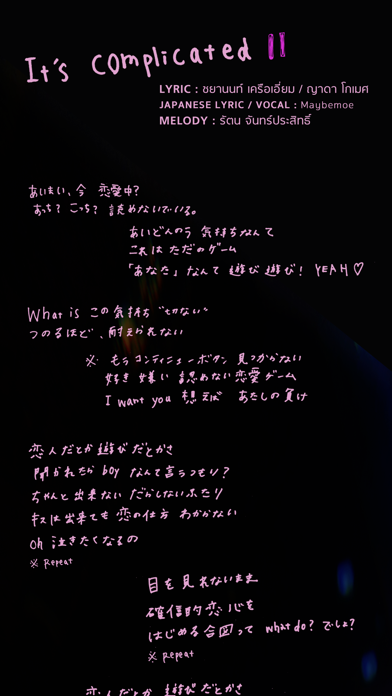 It's complicated !!
LYRIC : ชยานนท์ เครือเอี่ยม / ญาดา โกเมศ
JAPANESE LYRIC / VOCAL : Maybemoe
MELODY : รัตน จันทร์ประสิทธิ์
あいまい、今 恋愛中?
あっち? こっち? 読めないでいる。
あいどんのう 気持ちなんて
これは ただのゲーム
「あなた」なんて 遊び 遊び! YEAH♡
What is この気持ち "切ない"
つのるほど、耐えられない
※ もう コンティニューボタン 見つからない
好き 嫌い 認めない 恋愛ゲーム
I want you 想えば あたしの負け
恋人だとか 遊びだとかさ
聞かれたら boy なんて言うつもり?
ちゃんと出来ない だらしないふたり
キスは出来ても 恋の仕方 わからない
Oh 泣きたくなるの
※ Repeat
目を見れないまま
確信的恋心を
はじめる合図って what do? でしょ?
※ Repeat
恋人だとか 遊びだとかさ